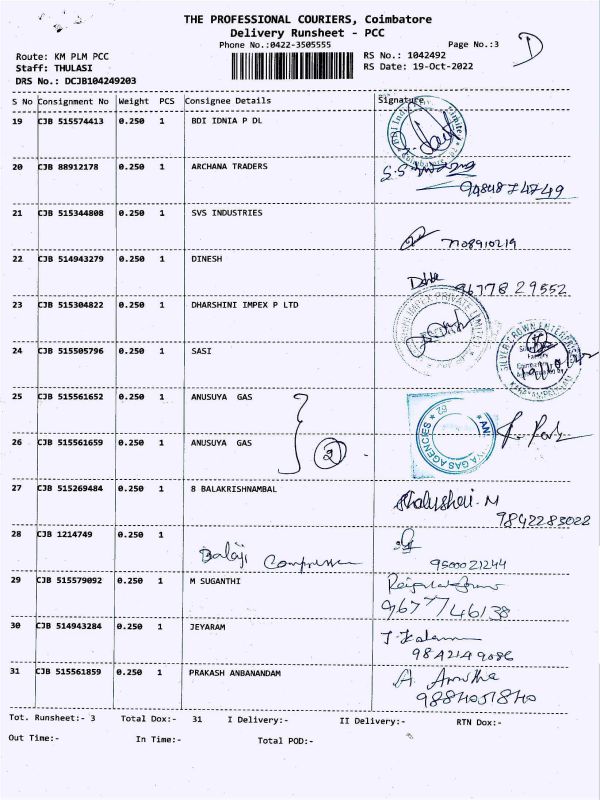 THE PROFESSIONAL COURIERS, Coimbatore
Delivery Runsheet - PCC
Phone No.:0422-3505555 Page No.:3 D
Route: KM PLM PCC RS No.: 1042492
Staff: THULASI RS Date: 19-Oct-2022
DRS No.: DCJB104249203
S No Consignment No Weight PCS Consignee Details Signature
19 CJB 515574413 0.250 1 BDI IDNIA P DL
20 CJB 88912178 0.250 1 ARCHANA TRADERS
9484874749
21 CJB 515344808 0.250 1 SVS INDUSTRIES
7708910219
22 CJB 514943279 0.250 1 DINESH
96778 29552
23 CJB 515304822 0.250 1 DHARSHINI IMPEX P LTD
IMPEX PRIVATE LIMITED
24 CJB 515505796 0.250 1 SASI
SILVER CROWN ENTERPRISES
25 CJB 515561652 0.250 1 ANUSUYA GAS
YA GAS AGENCIES
26 CJB 515561659 0.250 1 ANUSUYA GAS
2
27 CJB 515269484 0.250 1 B BALAKRISHNAMBAL
9842283022
28 CJB 1214749 0.250 1
Balaji Compressor 9500021244
29 CJB 515579092 0.250 1 M SUGANTHI
9677746138
30 CJB 514943284 0.250 1 JEYARAM
9842149086
31 CJB 515561859 0.250 1 PRAKASH ANBANANDAM
A. Amutha
9884051840
Tot. Runsheet:- 3 Total Dox:- 31 I Delivery:- II Delivery:- RTN Dox:-
Out Time:- In Time:- Total POD:-